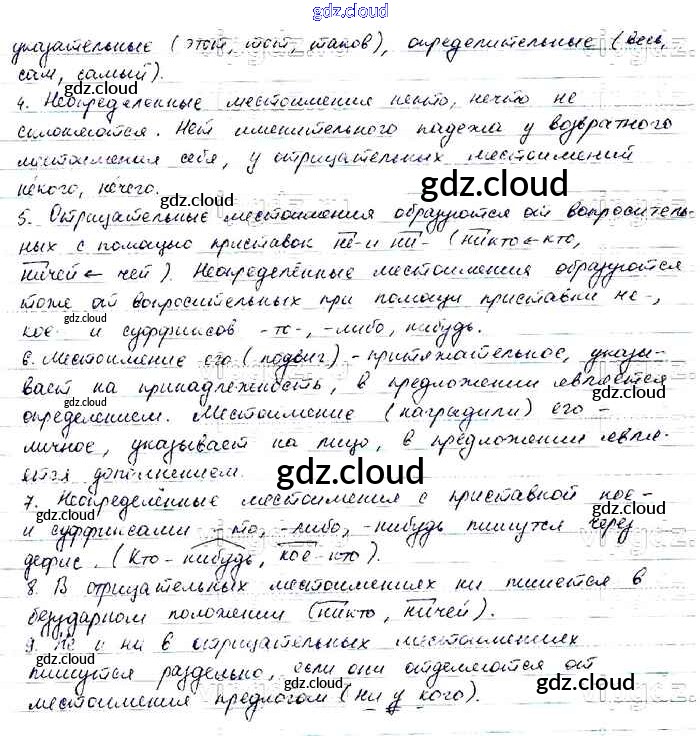 gdz.cloud
указательные (этот, тот, таков), определительные (весь,
сам, самый).
gdz.cloud
4. Неопределенные местоимения некто, нечто не
gdz.cloud
склоняются. Нет именительного падежа у возвратного
местоимения себя, у отрицательных местоимений
некого, нечего.
gdz.cloud gdz.cloud
5. Отрицательные местоимения образуются от вопроситель-
ных с помощью приставок не- и ни- (никто ← кто,
ничей ← чей). Неопределённые местоимения образуются
тоже от вопросительных при помощи приставки не-,
gdz.cloud
кое- и суффиксов -то-, -либо, нибудь.
6. Местоимение его (подвиг) - притяжательное, указы-
вает на принадлежность, в предложении является
gdz.cloud gdz.cloud
определением. Местоимение (наградили) его -
личное, указывает на лицо, в предложении явля-
ется дополнением.
gdz.cloud
7. Неопределённые местоимения с приставкой кое-
и суффиксами -то, -либо, -нибудь пишутся через
gdz.cloud
дефис. (Кто-нибудь, кое-кто).
gdz.cloud
8. В отрицательных местоимениях ни пишется в
безударном положении (никто, ничей).
gdz.cloud
9. Не и ни в отрицательных местоимениях
gdz.cloud
пишутся раздельно, если они отделяются от
gdz.cloud gdz.cloud
местоимения предлогом (ни у кого).